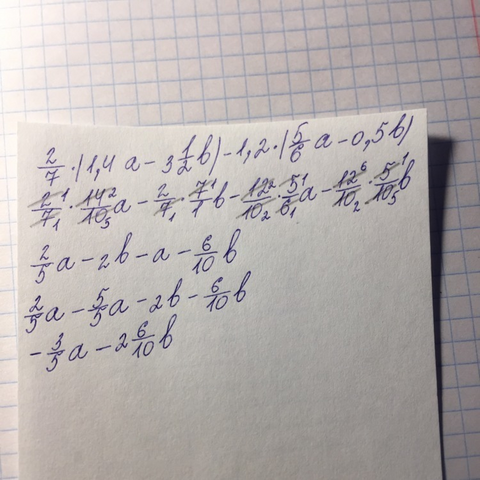 2/7 · (1,4a - 3 1/2 b) - 1,2 · (5/6 a - 0,5b)
2/7 1 1 · 14/10 2 5 a - 2/7 1 · 7/1 1 b - 12/10 2 2 · 5/6 1 1 a - 12/10 6 2 · 5/10 1 5 b
2/5 a - 2b - a - 6/10 b
2/5 a - 5/5 a - 2b - 6/10 b
- 3/5 a - 2 6/10 b